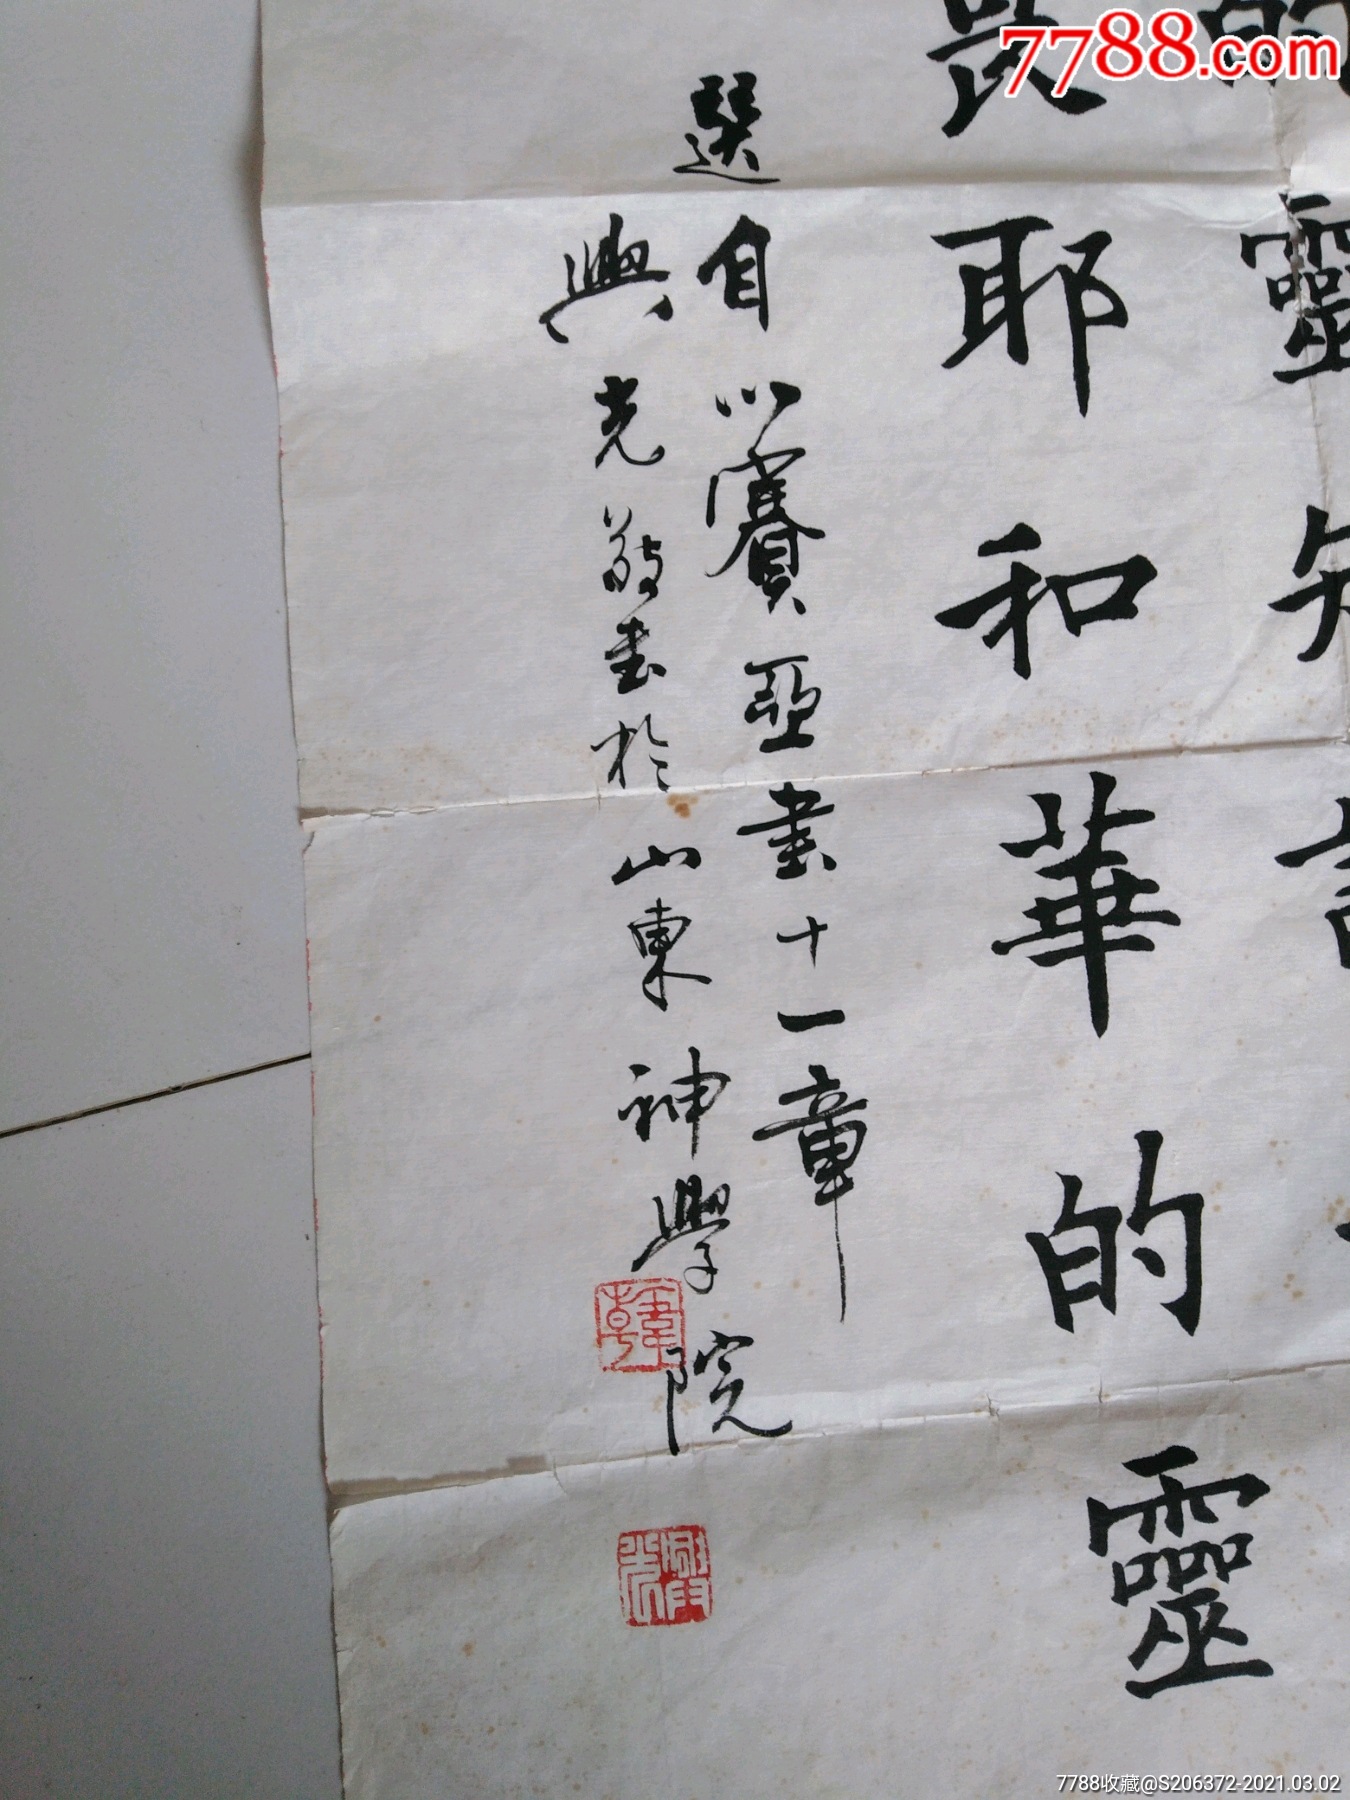 7788.com
的靈知
畏耶和華的靈
選自以賽亞書十一章
興光敬書於山東神學院
韓
7788收藏@S206372-2021.03.02